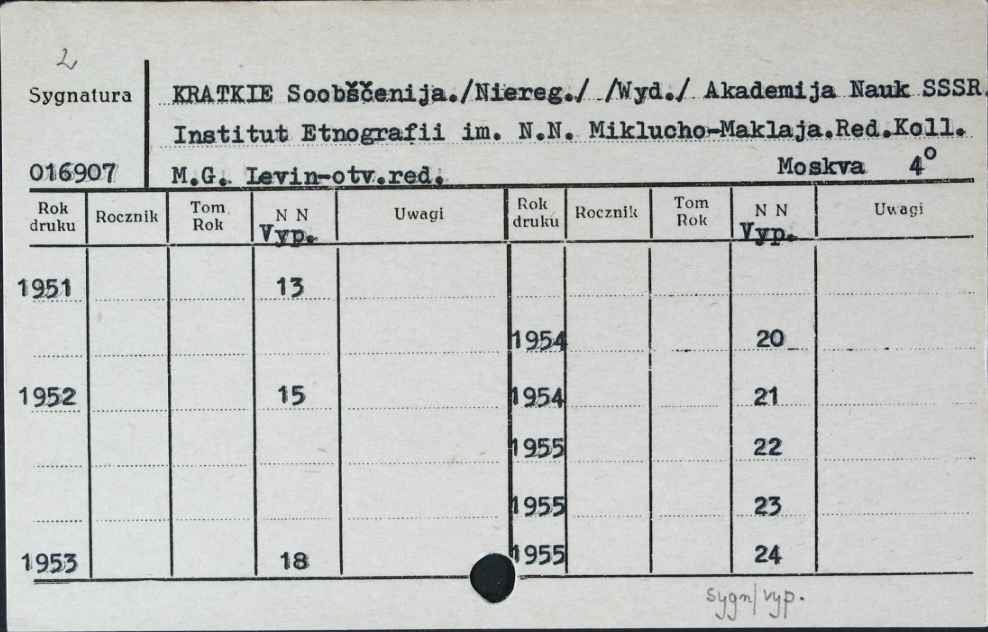 2
Sygnatura
KRATKIE Soobščenija./Niereg./ /Wyd./ Akademija Nauk SSSR.
Institut Etnografii im. N.N. Miklucho-Maklaja.Red.Koll.
016907 M.G. Levin-otv.red. Moskva 4°
Rok druku Rocznik Tom Rok N N Vyp. Uwagi Rok druku Rocznik Tom Rok N N Vyp. Uwagi
1951 13
1954 20
1952 15 1954 21
1955 22
1955 23
1953 18 1955 24
sygn/vyp.